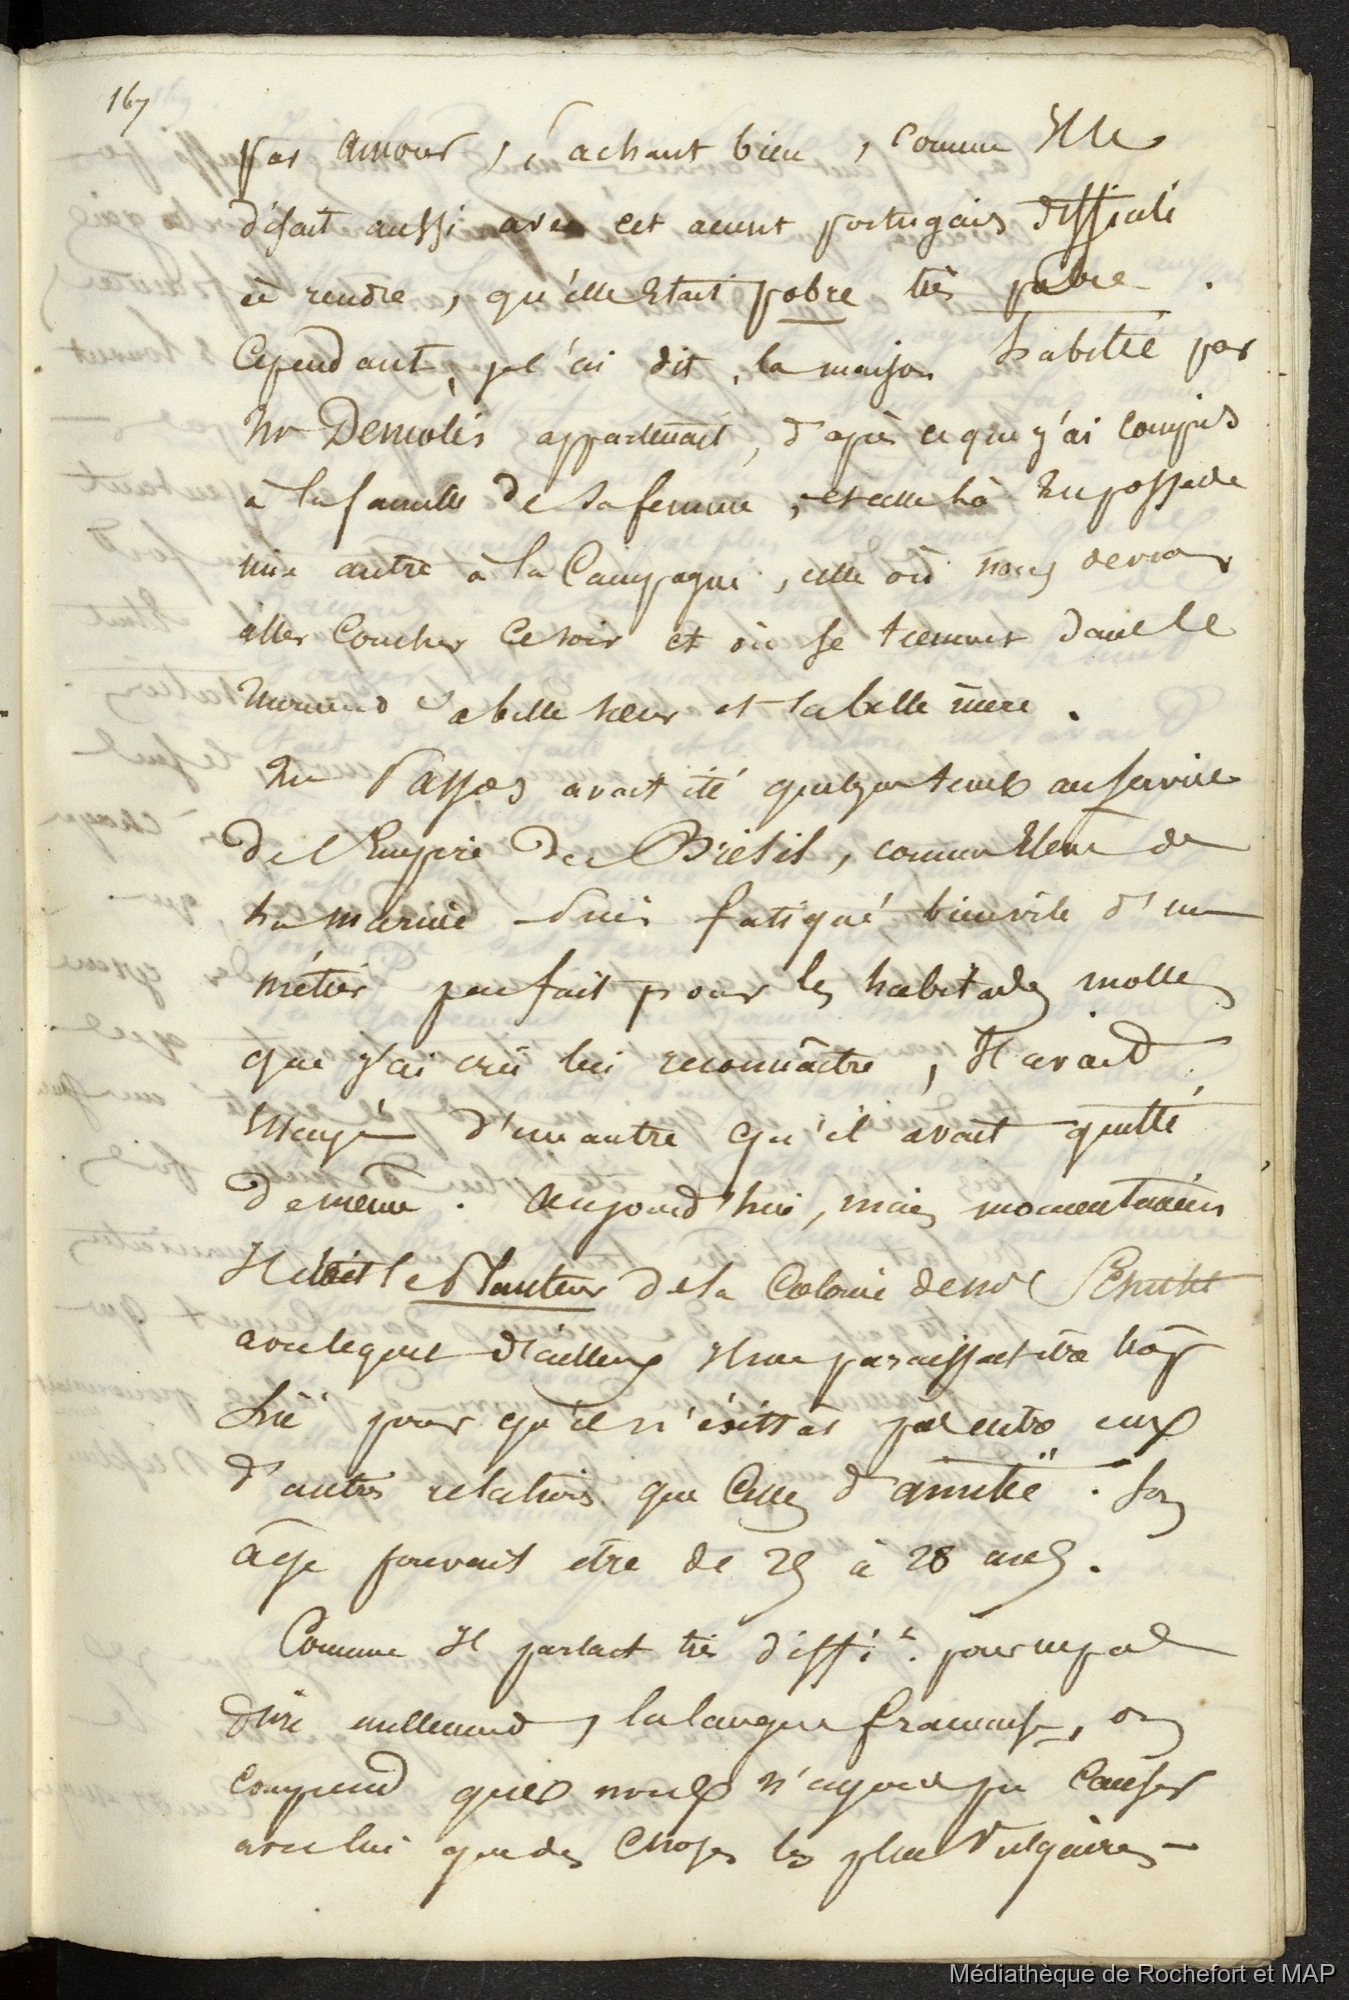 167
par amour, sachant bien, comme Elle
disait aussi avec cet accent portugais difficile
à rendre, qu'elle Etait pobre très pobre.
Cependant, je l'ai dit, la maison habitée par
Mr Demolés appartenait, d'après ce que j'ai compris
à la famille de sa femme, et celle là En possède
une autre à la Campagne, celle où nous devons
aller Coucher Ce soir et où se tiennent dans le
moment sa belle sœur et sa belle mère.
Mr Passos avait été quelque temps au service
de l'Empire du Brésil, comme Eleve de
la marine. Puis fatigué bien vite d'un
métier peu fait pour les habitudes molles
que j'ai crû lui reconnaître, Il avait
Essayé d'un autre qu'il avait quitté
de même. Aujourd'hui, mais momentaném
Il était le Planteur de la Colonie de Mr Schutt
avec lequel d'ailleurs Il me paraissait être trop
lié pour qu'il n'éxistas pas entre eux
d'autres relations que Celles d'amitié. Son
âge pouvait etre de 25 à 28 ans.
Comme Il parlait très diffi.t pour ne pas
dire nullement, la langue francaise, on
comprend que nous n'ayons pu Causer
avec lui que des Choses les plus Vulgaires
Médiathèque de Rochefort et MAP